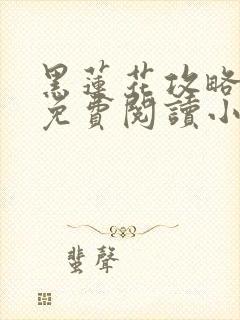 黑蓮花攻略
免費閱讀小
蜚聲